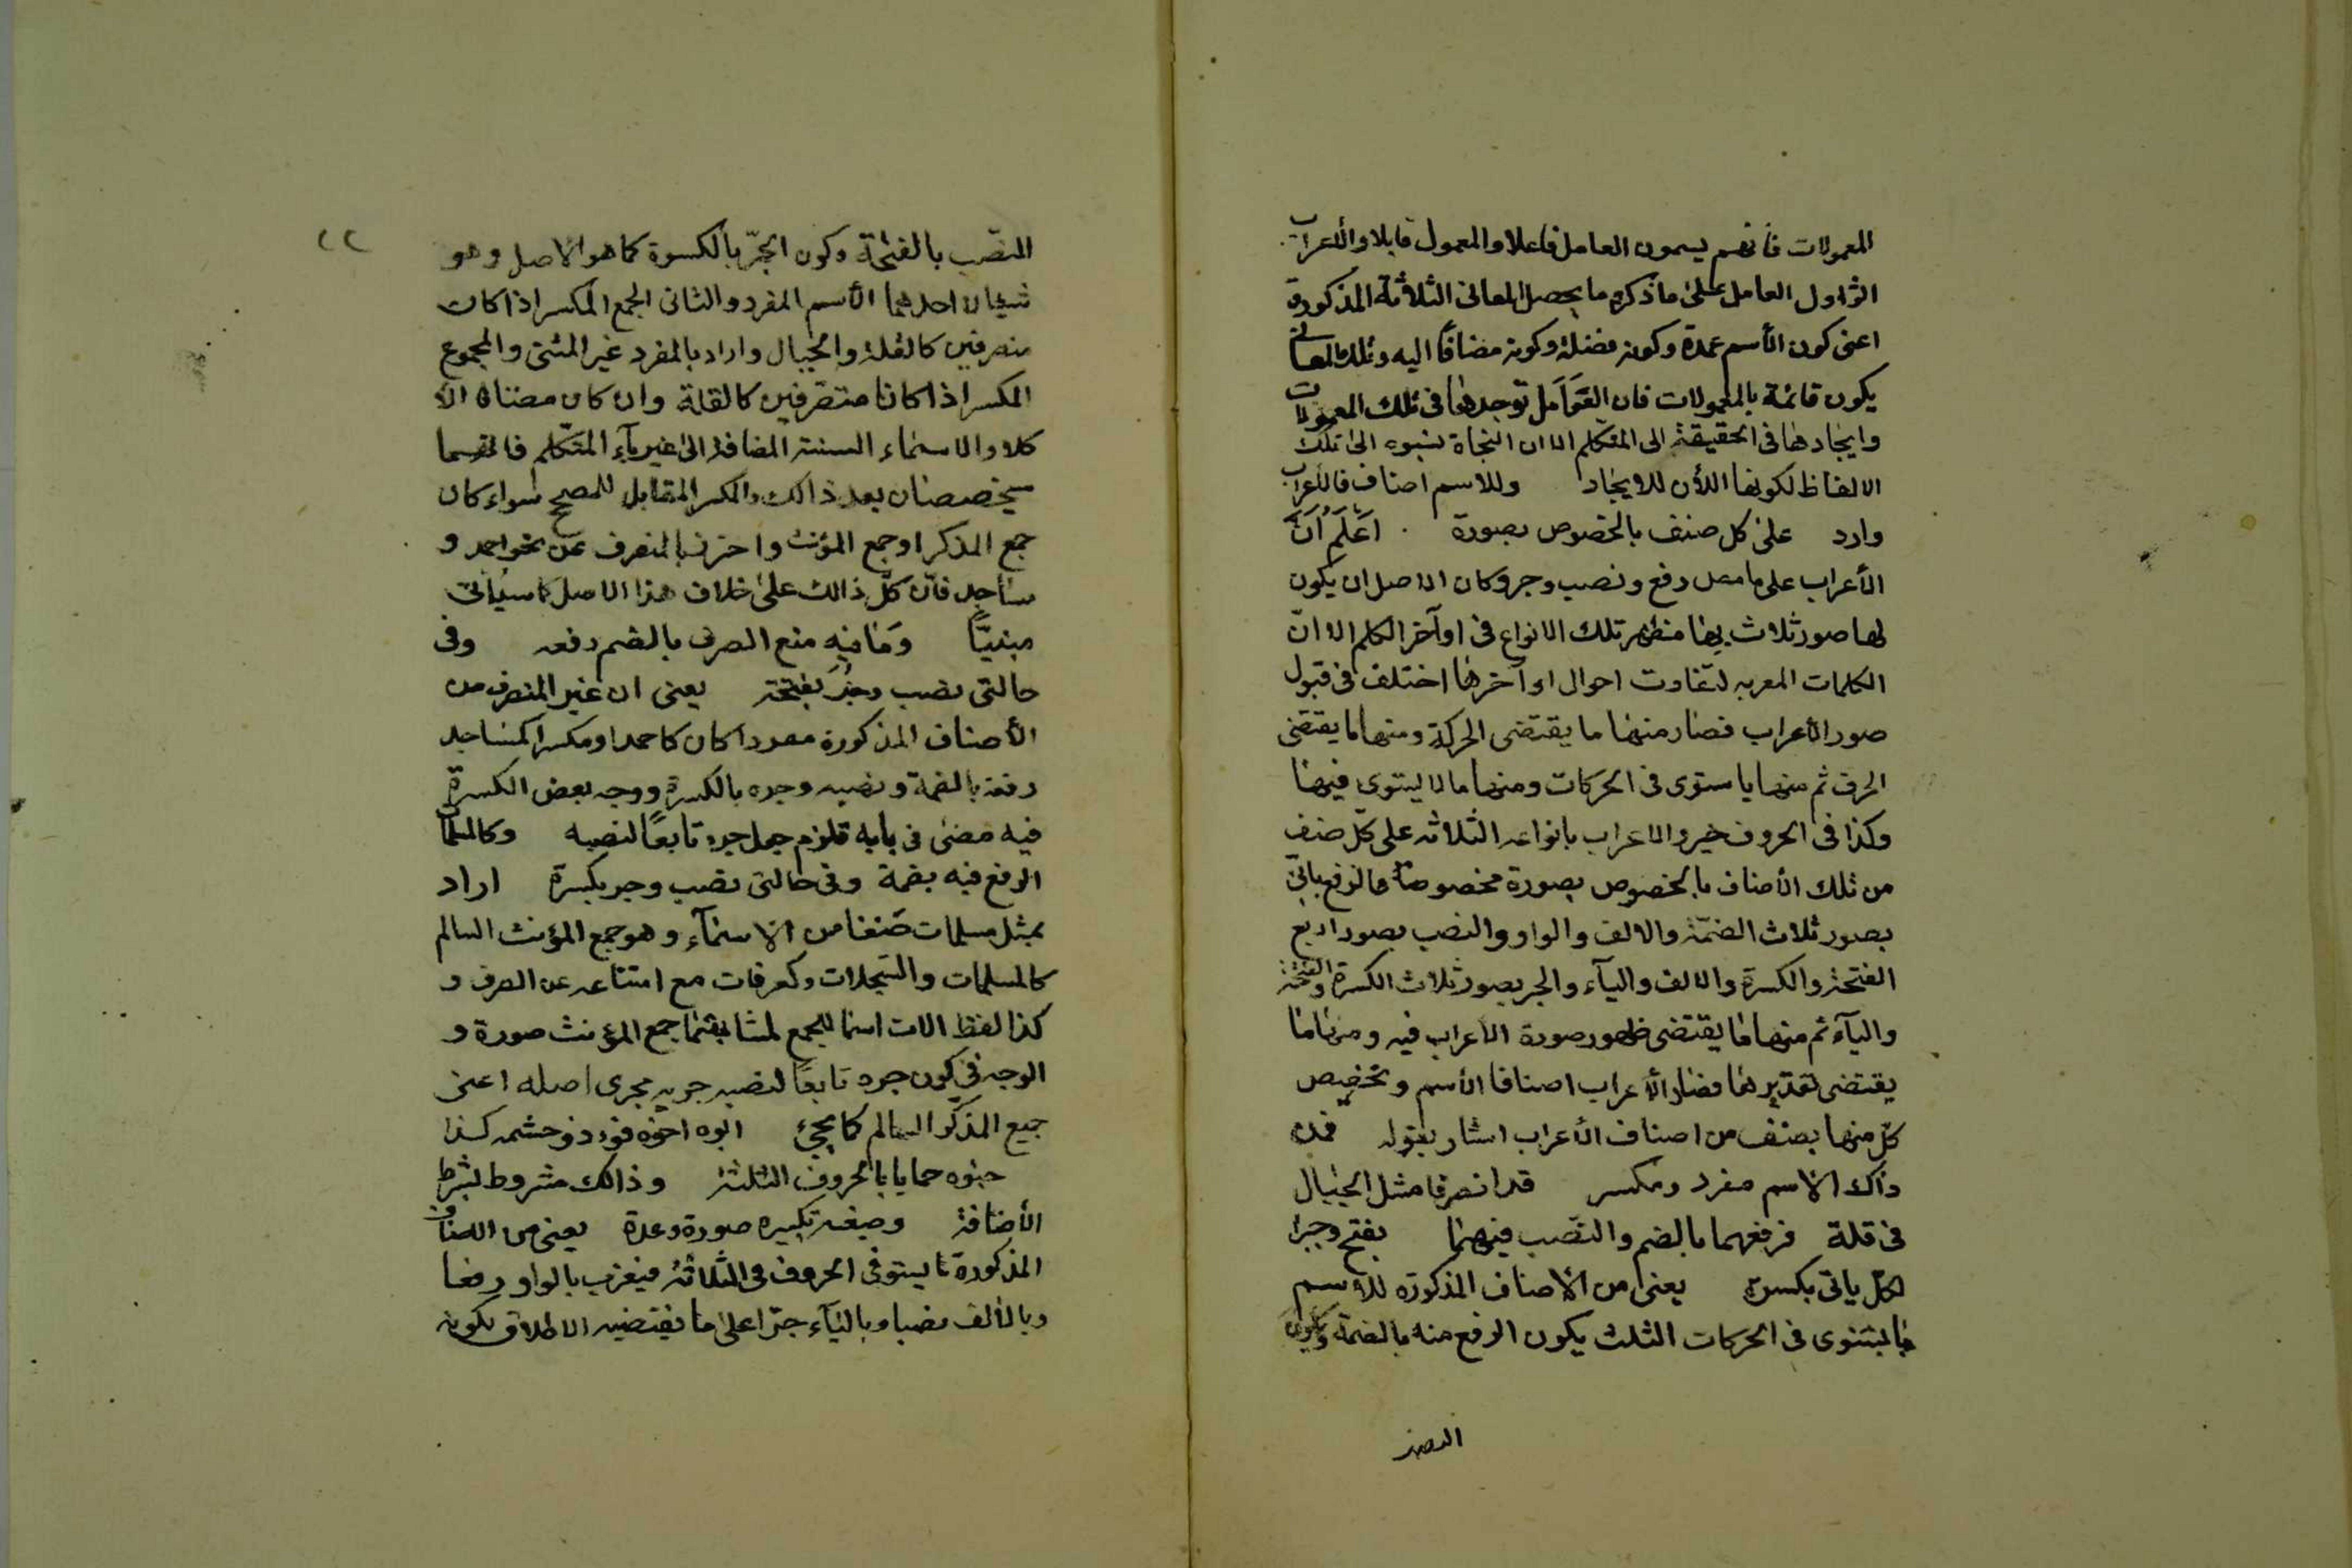 المعمولات فانهم يسمون العامل فاعلا والمعمول قابلا والأعراب
اثرا ول العامل على ما ذكره ما يحصل المعانى الثلاثة المذكورة
اعنى كون الأسم عمدة وكونه فضلة وكونه مضافًا اليه وتلك المعانى
يكون قائمة بالمعمولات فان العَوَامل توجدها فى تلك المعمولات
وايجادها فى الحقيقة الى المتكلم الا ان النحاة نسبوه الى تلك
الالفاظ لكونها اللأن للايجاد وللاسم اصناف فالأعراب
وارد على كل صنف بالخصوص بصورة . اعَلَم اَنّ
الأعراب على ما مصى رفع ونصب وجر وكان الاصل ان يكون
لها صور ثلاث بها منظهر تلك الانواع فى اوآخر الكلم الا انّ
الكلمات المعربه لتفاوت احوال اوآخرها اختلف فى قبول
صور الأعراب فصار منها ما يقتضى الحركة ومنها ما يقتضى
الحرف ثم منها يا ستوى فى الحركات ومنها ما لا يستوى فيها
وكذا فى الحروف خير والاعراب بانواعه الثلاثه على كلّ صنف
من تلك الأصناف بالخصوص بصورة مخصوصة فالرفع ياتى
بصور ثلاث الضمّة والالف والواو والنصب بصور اربع
الفتحة والكسرة والالف واليآء والجر بصور ثلاث الكسرة والفتحة
واليآء ثم منها ما يقتضى ظهور صورة الأعراب فيه ومنها ما
يقتضى تقديرها فصار الأعراب اصنافا الأسم وتخصيص
كلّ منها بصنف من اصناف الأعراب اشار بقوله فمن
ذاك الاسم مفرد ومكسر قد انصرفا مثل الجبال
فى قلة فرفعهما بالضم والنّصب فيهما بفتح وجرا
لكلّ ياتى بكسرة يعنى من الأصناف المذكورة للاسم
ما يستوى فى الحركات الثلث يكون الرفع منه بالضمة وكون
النصب
٢٢
النصّب بالفتحة وكون الجرّ بالكسرة كما هو الاصل وهو
شيئان احدهما الأسم المفرد والثانى الجمع المكسر اذا كان
منصرفين كالقلة والجبال واراد بالمفرد غير المثنى والمجموع
المكسر اذا كانا متصرفين كالقلة وان كان مضافا الأ
كلا والاسماء الستة المضافة الى غير يآء المتكلم فانهما
سيخصصان بعد ذالك والمكسر المقابل للمصحح سواء كان
جمع المذكر او جمع المؤنث واحترز بالمنصرف عن نحو احمد و
مساجد فانّ كلّ ذالك على خلاف هذا الاصل كما سيأتى
مبنيًّا ومَا فيه منع الصرف بالضم رفعه وفى
حالتى نصب وجُرّ بفتحة يعنى ان غير المنصرف من
الأصناف المذكورة مفردا كان كاحمد او مكسرا كمساجد
رفعه بالضمة ونصبه وجره بالكسرة ووجه بعض الكسرة
فيه مضى فى بابه قلزم جعل جره تابعًا لنصبه وكالمسلمات
الرفع فيه بضمة وفى حالتى نصب وجر بكسرة اراد
بمثل مسلمات صَنفا من الاسمآء وهو جمع المؤنث السالم
كالمسلمات والسّجلات وكعرفات مع امتناعه عن الصرف و
كذا لفظ الات اسما للجمع لمشابهتها جمع المؤنث صورة و
الوجه فى كون جره تابعًا لنصبه جريه مجرى اصله اعنى
جميع المذكر السالم كما يجئ ابوه اخوه فوه ذو حشمه كذا
حموه حمايا بالحروف الثلثة وذالك مشروط بشرط
الأضافة وصيغة تكبيره صورة وعدة يعنى من الاصناف
المذكورة ما يستوفى الحروف فى الثلاثة فيعرب بالواو رفعا
وبالألف نصبا وباليآء جرّا على ما يقتضيه الاطلاق بكونه